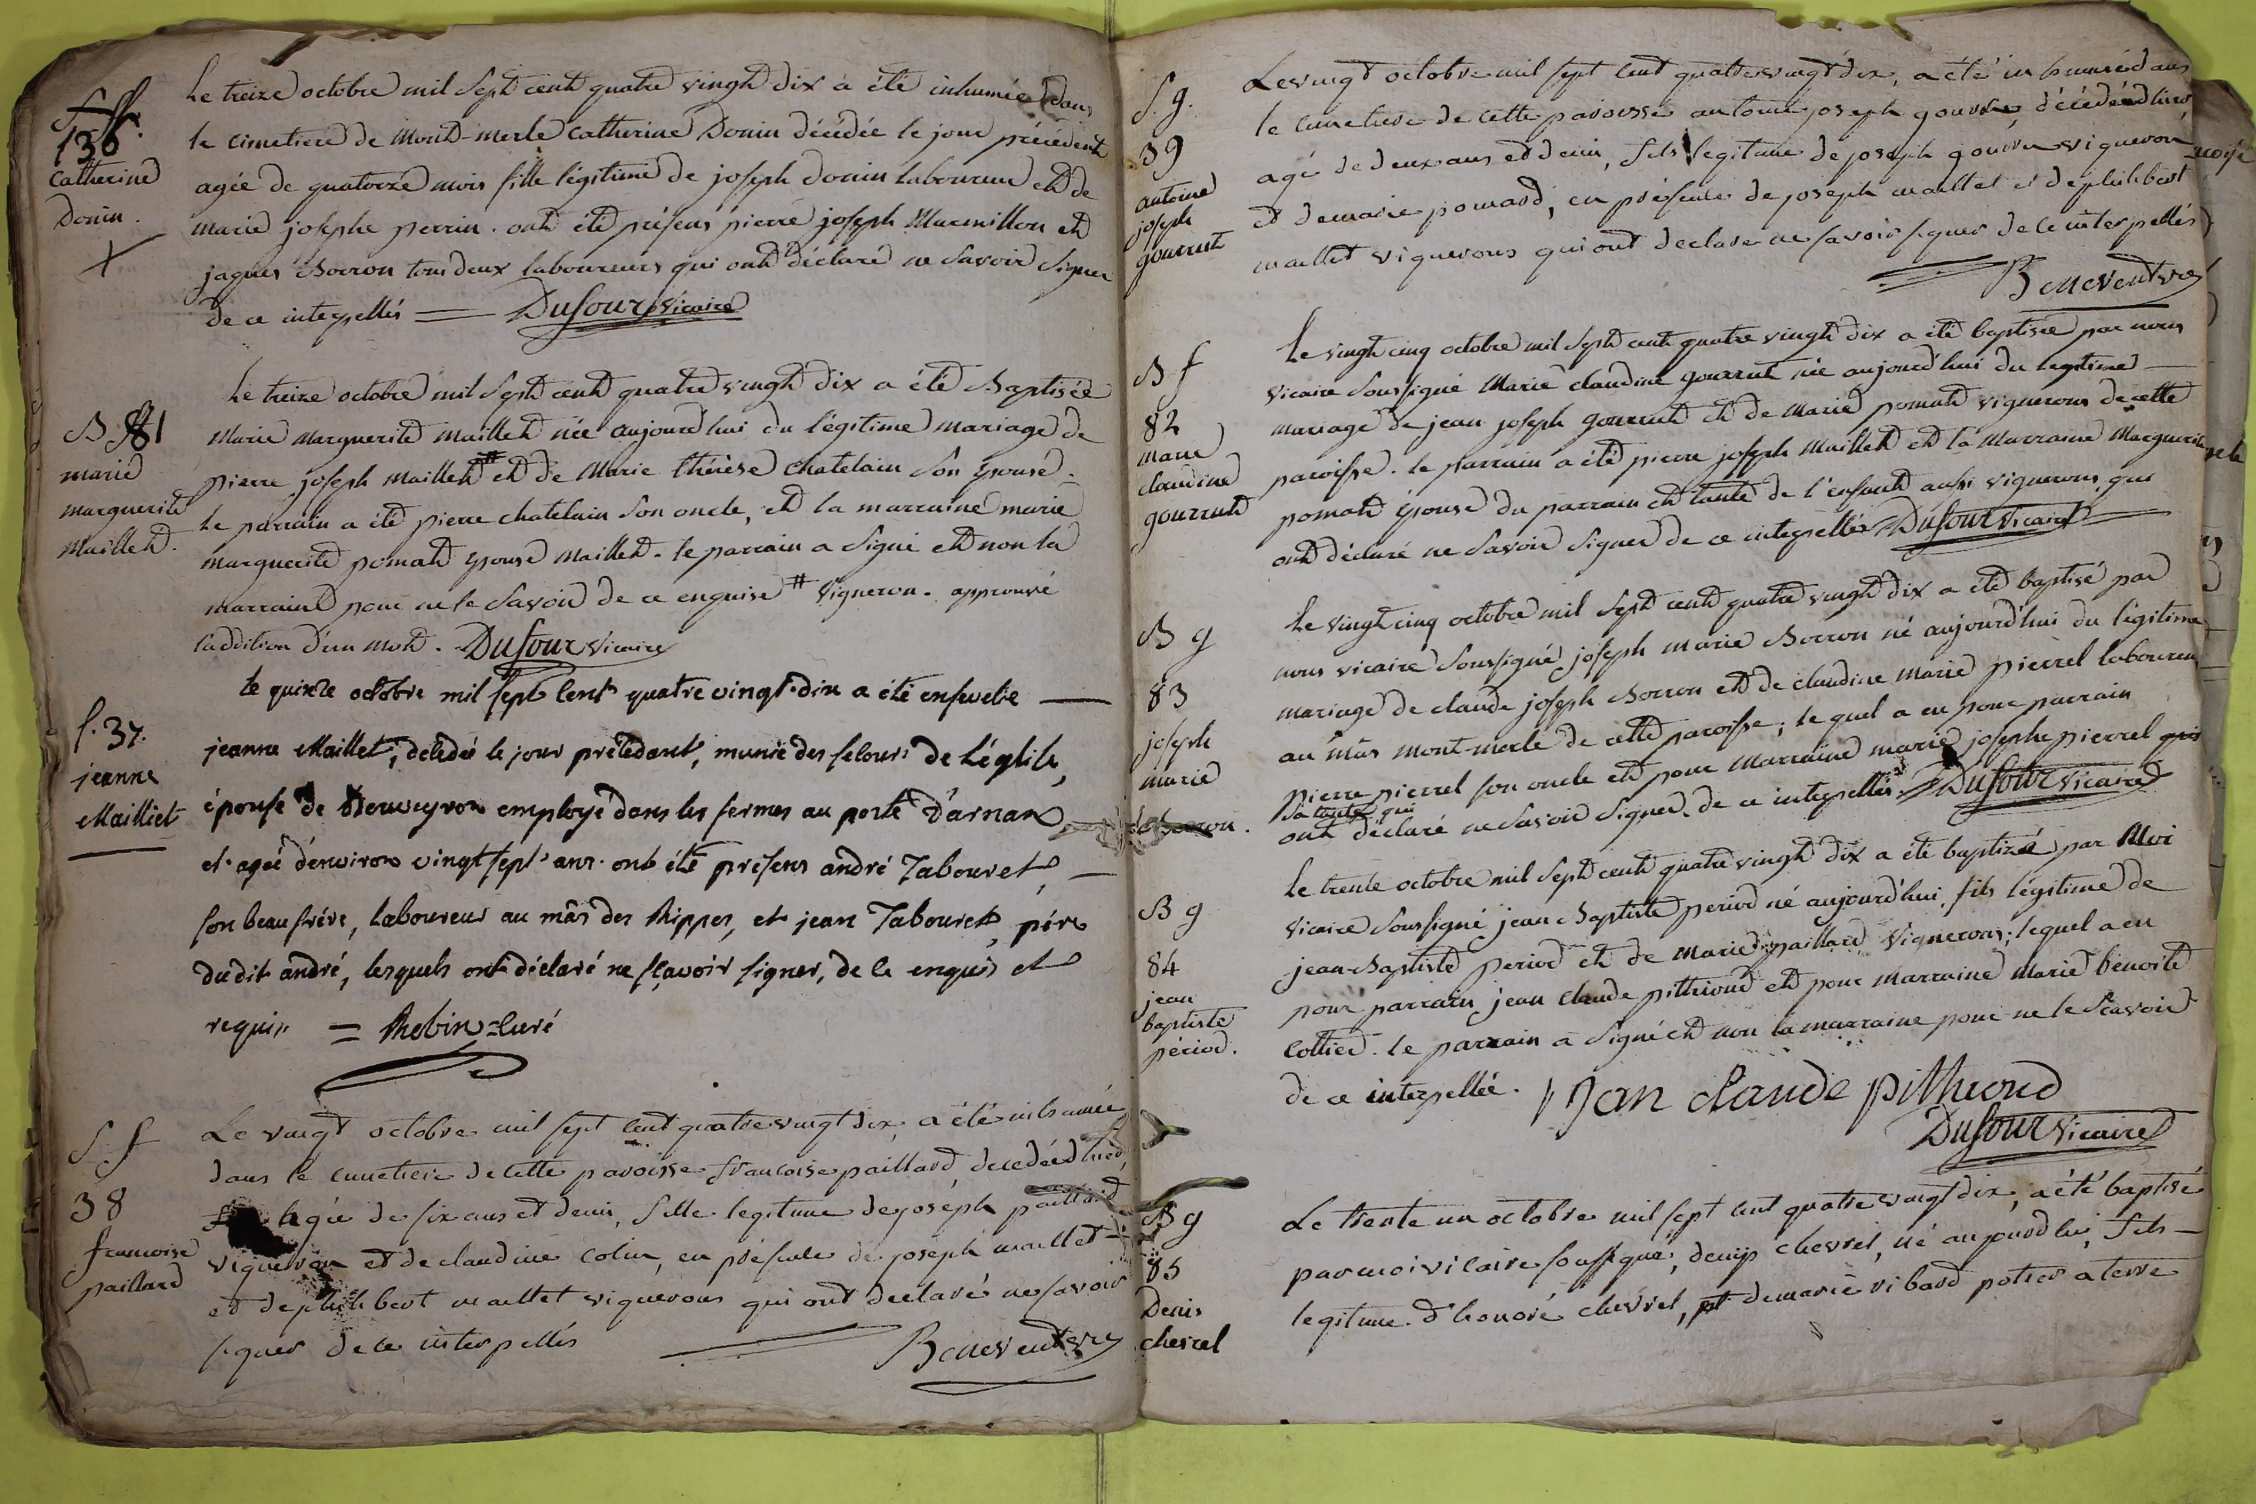 S f.
136
Catherine
Donin.
Le treize octobre mil sept cent quatre vingt dix a été inhumée dans
le cimetiere de Mont-merle Catherine Donin décédée le jour précédent
agée de quatorze mois fille légitime de joseph donin laboureur et de
marie josephe perrin. ont été présens pierre joseph Marmillon et
jaques Borron tous deux laboureurs qui ont déclaré ne Savoir Signer
de ce interpellés Dufour vicaire
B. 81
marie
marguerite
Maillet.
Le treize octobre mil Sept cent quatre vingt dix a été Baptisée
Marie Marguerite Maillet née aujourd'hui du légitime mariage de
pierre joseph Maillet # et de Marie thérèse chatelain Son épouse.
Le parrain a été pierre chatelain Son oncle, et la marraine marie
marguerite pomat épouse Maillet. le parrain a Signé et non la
marraine pour ne le Savoir de ce enquise # vigneron. approuvé
l'addition d'un mot. Dufour vicaire
f. 37.
jeanne
Mailliet
Le quinze octobre mil sept cent quatre vingt-dix a été ensevelie
jeanne Maillet, décédée le jour précédant, munie des secours de L'église,
épouse de employé dans les fermes au poste D'arnax
et agée d'environ vingt sept ans. ont été présens andré Tabouret,
son beau frére, laboureur au mâs des Rippes, et jean Tabouret, pére
dudit andré, lesquels ont déclaré ne sçavoir signer, de ce enquis et
requis = Robin curé
S. f
38
francoise
paillard
Le vingt octobre mil sept cent quatre vingt dix, a été inhumée
dans le cimetiere de cette paroisse francoise paillard, decedée d hier,
agée de six ans et demi, fille legitime de joseph paillard
vigneron et de claudine Colin, en présence de joseph maillet
et de philibert maillet vignerons qui ont declaré ne savoir
signer de ce interpellés Beneventvre
S. g.
39
antoine
joseph
gourrut
Le vingt octobre mil sept cent quatre vingt dix, a été inhumé dans
le cimetiere de cette paroisse antoine joseph gourru, décédé d hier,
agé de deux ans et demi, fils legitime de joseph gourru vigneron
et de marie pomard, en présence de joseph maillet et de philibert
maillet vignerons qui ont declaré ne savoir signer de ce interpellés
Beneventvre
B f
82
marie
claudine
gourrut
Le vingt cinq octobre mil Sept cent quatre vingt dix a été baptisée par nous
vicaire Soussigné Marie claudine gourrut née aujourd'hui du legitime
mariage de jean joseph gourrut et de Marie pomat vignerons de cette
paroisse. le parrain a été pierre joseph Maillet et la Marraine Marguerite
pomat épouse du parrain et tante de l'enfant aussi vignerons, qui
ont déclaré ne Savoir Signer de ce interpellés Dufour vicaire
B g
83
joseph
marie
Borron.
Le vingt cinq octobre mil Sept cent quatre vingt dix a été baptisé par
nous vicaire Soussigné joseph marie Borron né aujourd'hui du légitime
mariage de claude joseph Borron et de claudine marie pierrel laboureurs
au mâs mont-merle de cette paroisse; lequel a eu pour parrain
pierre pierrel son oncle et pour marraine marie josephe pierrel
Sa tante qui
ont déclaré ne Savoir Signer de ce interpellés. Dufour vicaire
B g
84
jean
baptiste
périod.
Le trente octobre mil Sept cent quatre vingt dix a été baptizé par Moi
vicaire Soussigné jean-Baptiste period né aujourd'hui, fils légitime de
jean-Baptiste period et de Marie paillard vignerons; lequel a eu
pour parrain jean claude pithioud et pour marraine Marie benoite
Cottier. le parrain a Signé et non la marraine pour ne le Scavoir
de ce interpellée. Jan claude pithioud
Dufour vicaire
B g
85
Denis
chevrel
Le trente un octobre mil sept cent quatre vingt dix, a été baptisé
par moi vicaire soussigné, denys chevrel, né aujourd hui, fils
legitime d'honoré chevrel, et de marie ribard potier a terre